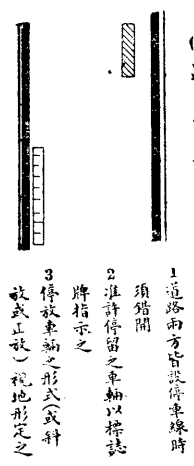 1 道路兩方皆設停車線時
須錯開
2 准許停留之車輛以標誌
牌指示之
3 停放車輛之形式(或斜
放或正放)視地形定之